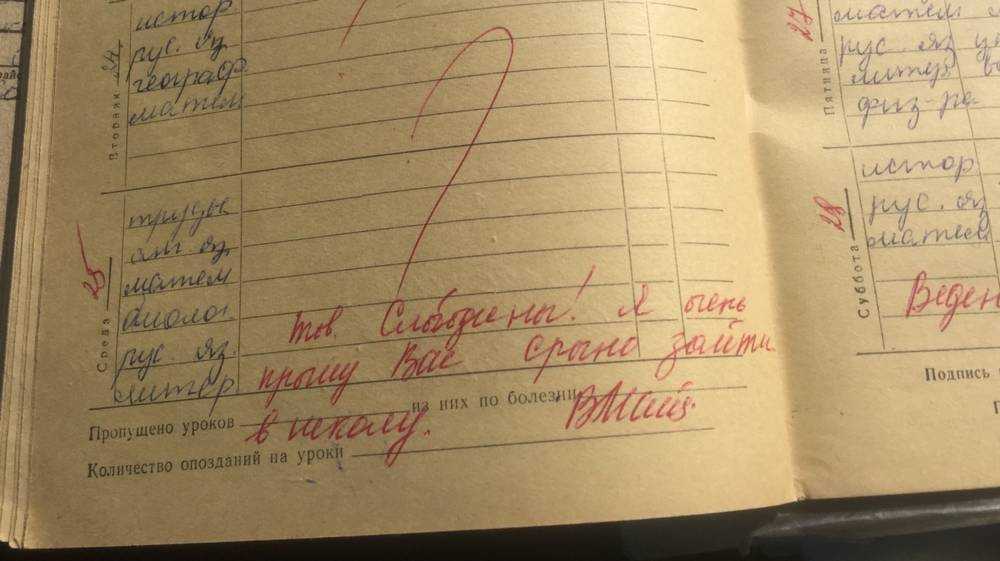 истор
рус. яз
географ
матем
Вторник 24
трудов
анг. яз
матем
биолог
рус. яз.
литер
Среда 25
Тов. Слободены! Я очень
прошу Вас срочно зайти
в школу.
Пропущено уроков
из них по болезни
Количество опозданий на уроки
матем
рус. яз
литер
физ-ра
Пятница 27
истор
рус. яз
матем
Суббота 28
Веден
Подпись